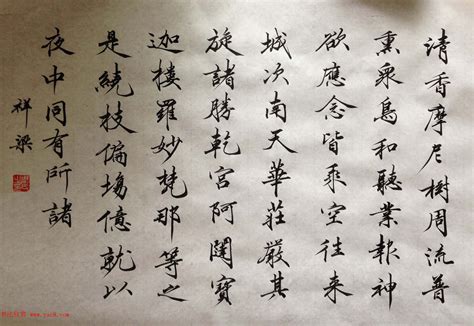 清香摩尼樹周流普
熏衆鳥和聽業報神
欲應念皆乘空往来
城次南天華莊嚴其
旋諸勝乾宮阿闥寶
迦樓羅妙梵那等之
是繞枝偏塲億就以
夜中同有所諸
祥梁